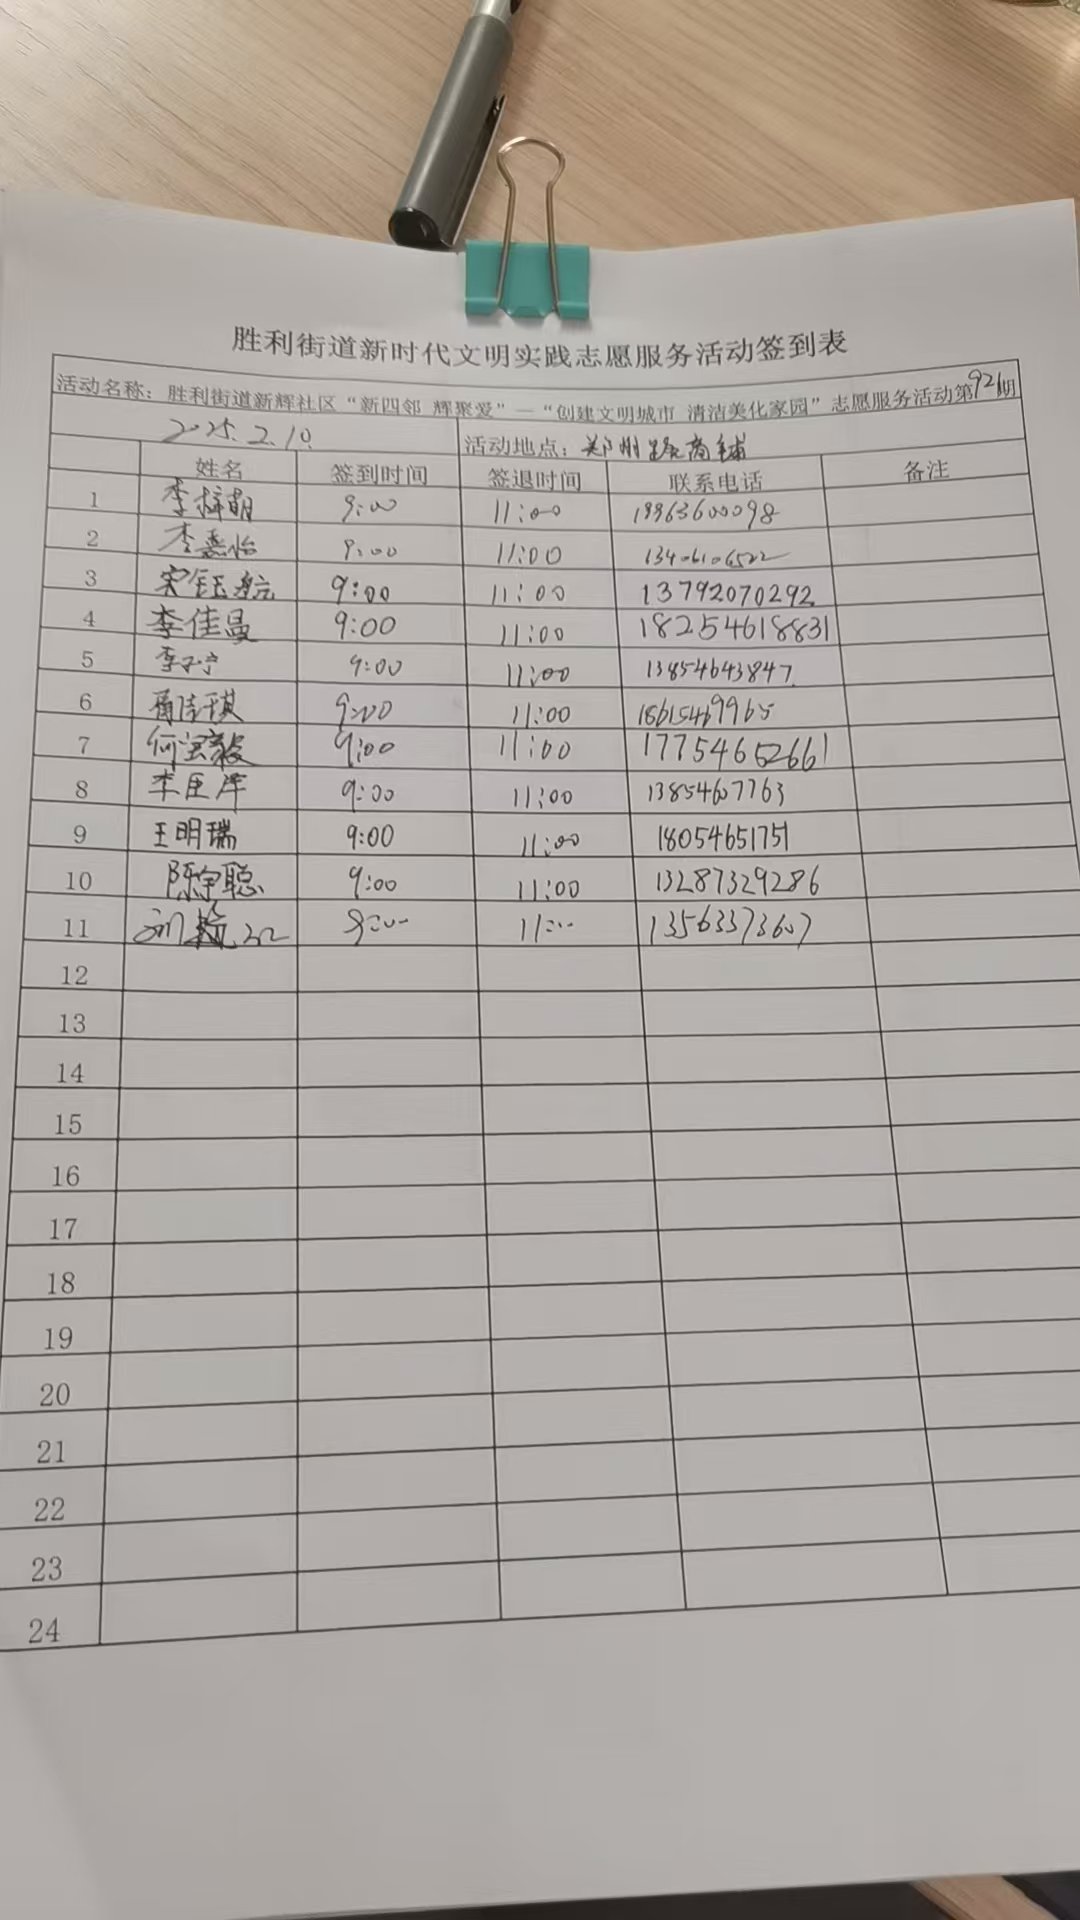 胜利街道新时代文明实践志愿服务活动签到表
活动名称：胜利街道新辉社区“新四邻 辉聚爱”—“创建文明城市 清洁美化家园”志愿服务活动第921期
2025.2.10. 活动地点：郑州路商铺
姓名 签到时间 签退时间 联系电话 备注
1 李梓萌 9:00 11:00 19963600098
2 李嘉怡 9:00 11:00
3 宋钰航 9:00 11:00 13792070292
4 李佳曼 9:00 11:00 18254618831
5 李子宁 9:00 11:00 13854643847
6 9:00 11:00 18615469965
7 何宝毅 9:00 11:00 17754652661
8 李臣洋 9:00 11:00 13854607763
9 王明瑞 9:00 11:00 18054651751
10 陈宇聪 9:00 11:00 13287329286
11 9:00 11:00 13563373607
12
13
14
15
16
17
18
19
20
21
22
23
24